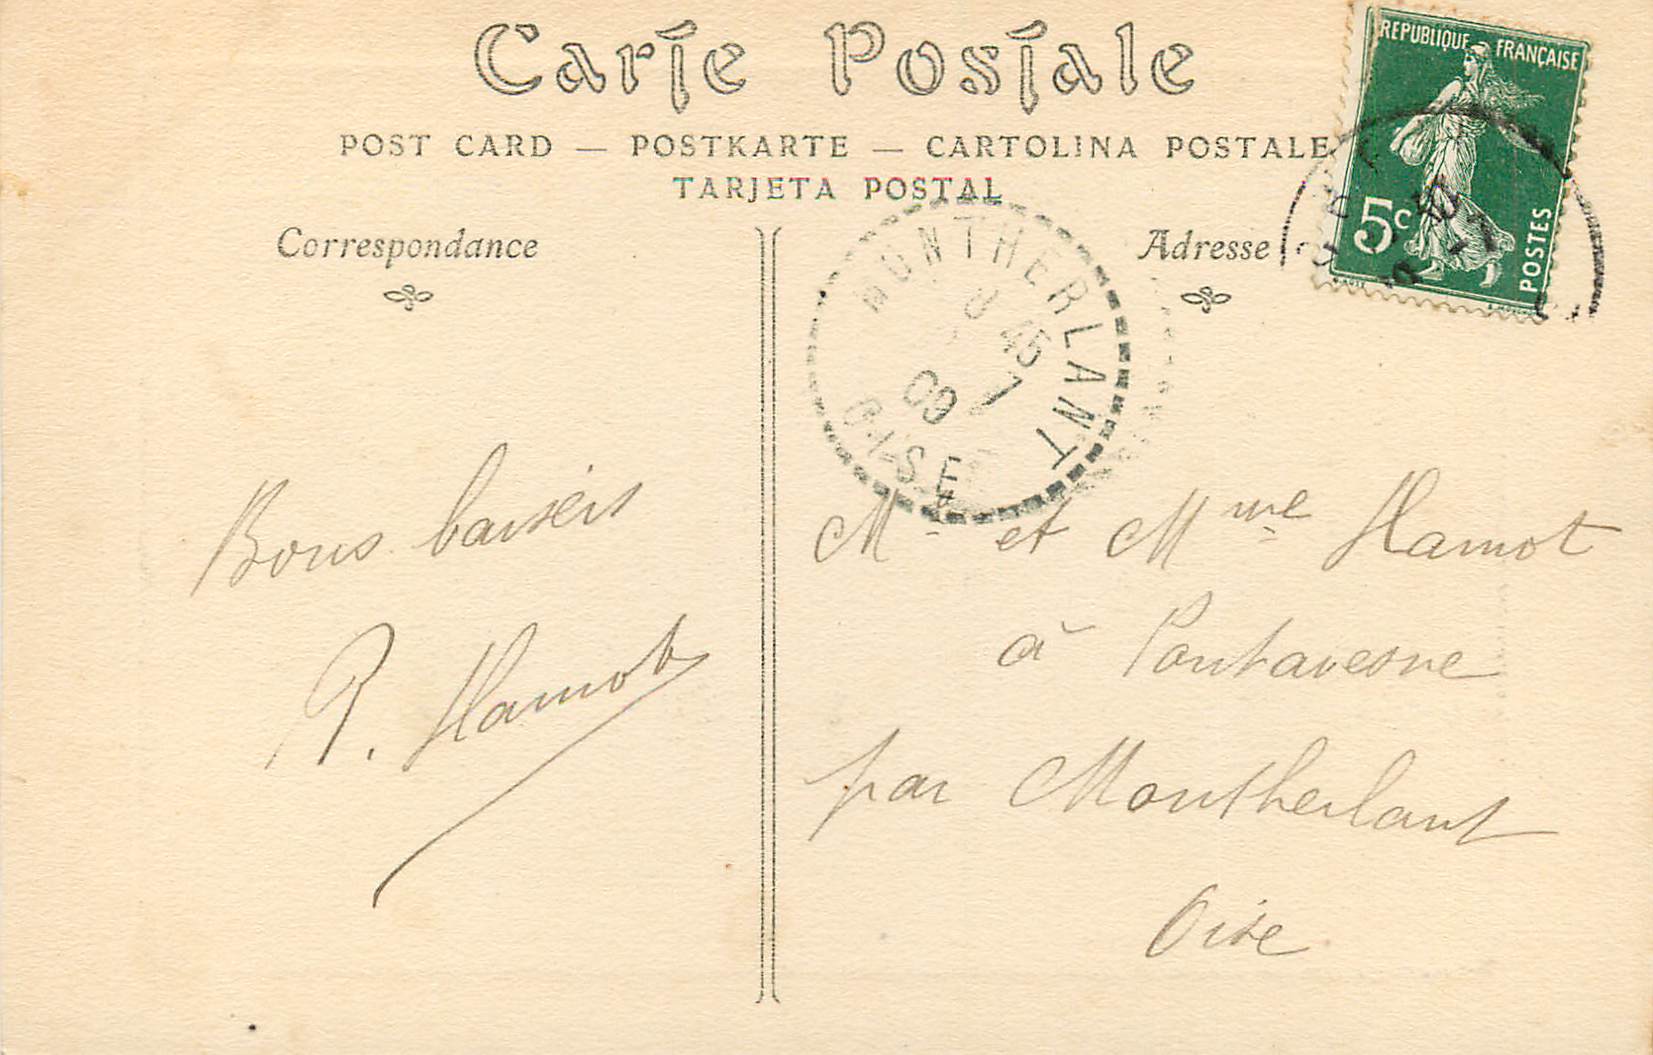 Carte Postale
POST CARD — POSTKARTE — CARTOLINA POSTALE
TARJETA POSTAL
Correspondance
Adresse
REPUBLIQUE FRANÇAISE
5c
POSTES
MONTHERLANT
45
7
09
OISE
Bons baisers
R. Hamot
Mr et Mme Hamot
à Pontavesne
par Montherlant
Oise